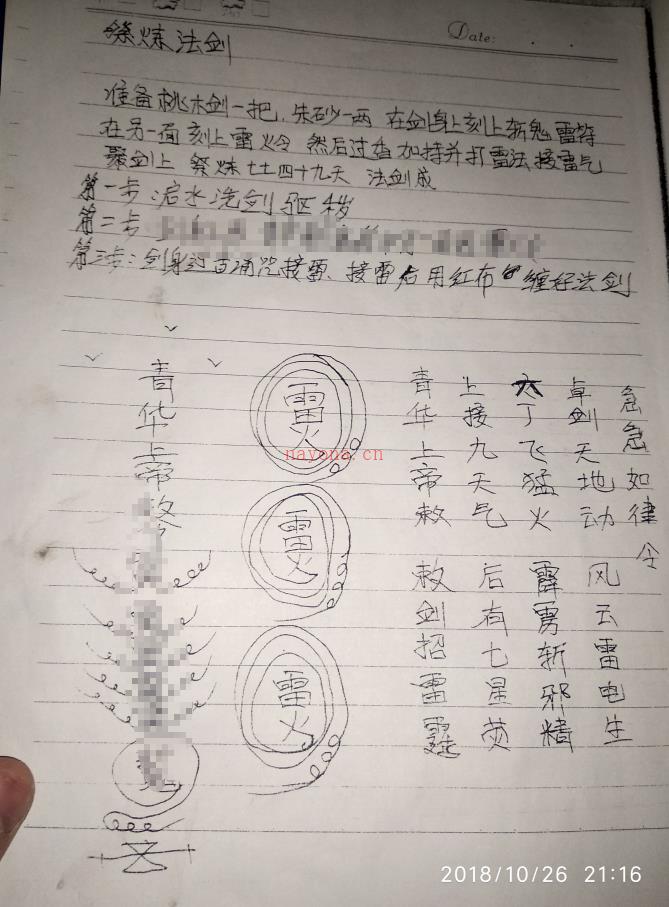 Date:
祭炼法剑
准备桃木剑一把,朱砂一两 在剑身上刻上斩鬼雷符
在另一面刻上雷火令 然后过香加持并打雷法接雷气
聚剑上 祭炼七七四十九天 法剑成
第一步:洁水洗剑驱秽
第二步
第三步:剑身过百诵咒接雷、接雷后用红布缠好法剑
青华上帝
雷火
雷火
雷火
青华上帝敕 敕剑招雷霆
上接九天气 后有七星
六丁飞猛火 霹雳斩邪精
卓剑天地动 风云雷电生
急急如律令
nayona.cn
2018/10/26 21:16